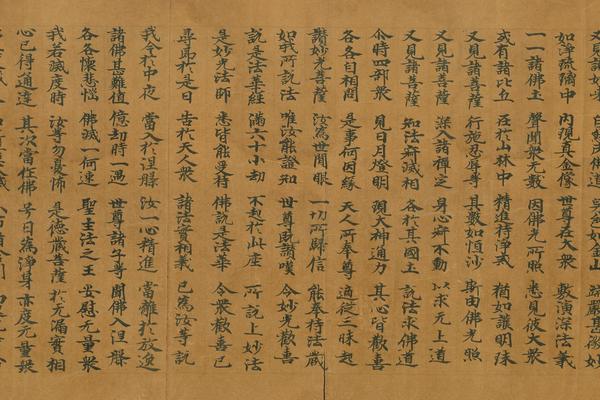 又見諸如來 自然成佛道 身色如金山 端嚴甚微妙
如淨琉璃中 內現真金像 世尊在大衆 敷演深法義
一一諸佛土 聲聞衆无數 因佛光所照 悉見彼大衆
或有諸比丘 在於山林中 精進持淨戒 猶如護明珠
又見諸菩薩 行施忍辱等 其數如恒沙 斯由佛光照
又見諸菩薩 深入諸禪定 身心寂不動 以求无上道
又見諸菩薩 知法寂滅相 各於其國土 說法求佛道
尒時四部衆 見日月燈明 現大神通力 其心皆歡喜
各各自相問 是事何因緣 天人所奉尊 適從三昧起
讚妙光菩薩 汝為世間眼 一切所歸信 能奉持法藏
如我所說法 唯汝能證知 世尊既讚嘆 令妙光歡喜
說是法華經 滿六十小劫 不起於此座 所說上妙法
是妙光法師 悉皆能受持 佛說是法華 令衆歡喜已
尋即於是日 告於天人衆 諸法實相義 已為汝等說
我今於中夜 當入於涅槃 汝一心精進 當離於放逸
諸佛甚難值 億劫時一遇 世尊諸子等 聞佛入涅槃
各各懷悲惱 佛滅一何速 聖主法之王 安慰无量衆
我若滅度時 汝等勿憂怖 是德藏菩薩 於无漏實相
心已得通達 其次當作佛 号曰為淨身 亦度无量衆